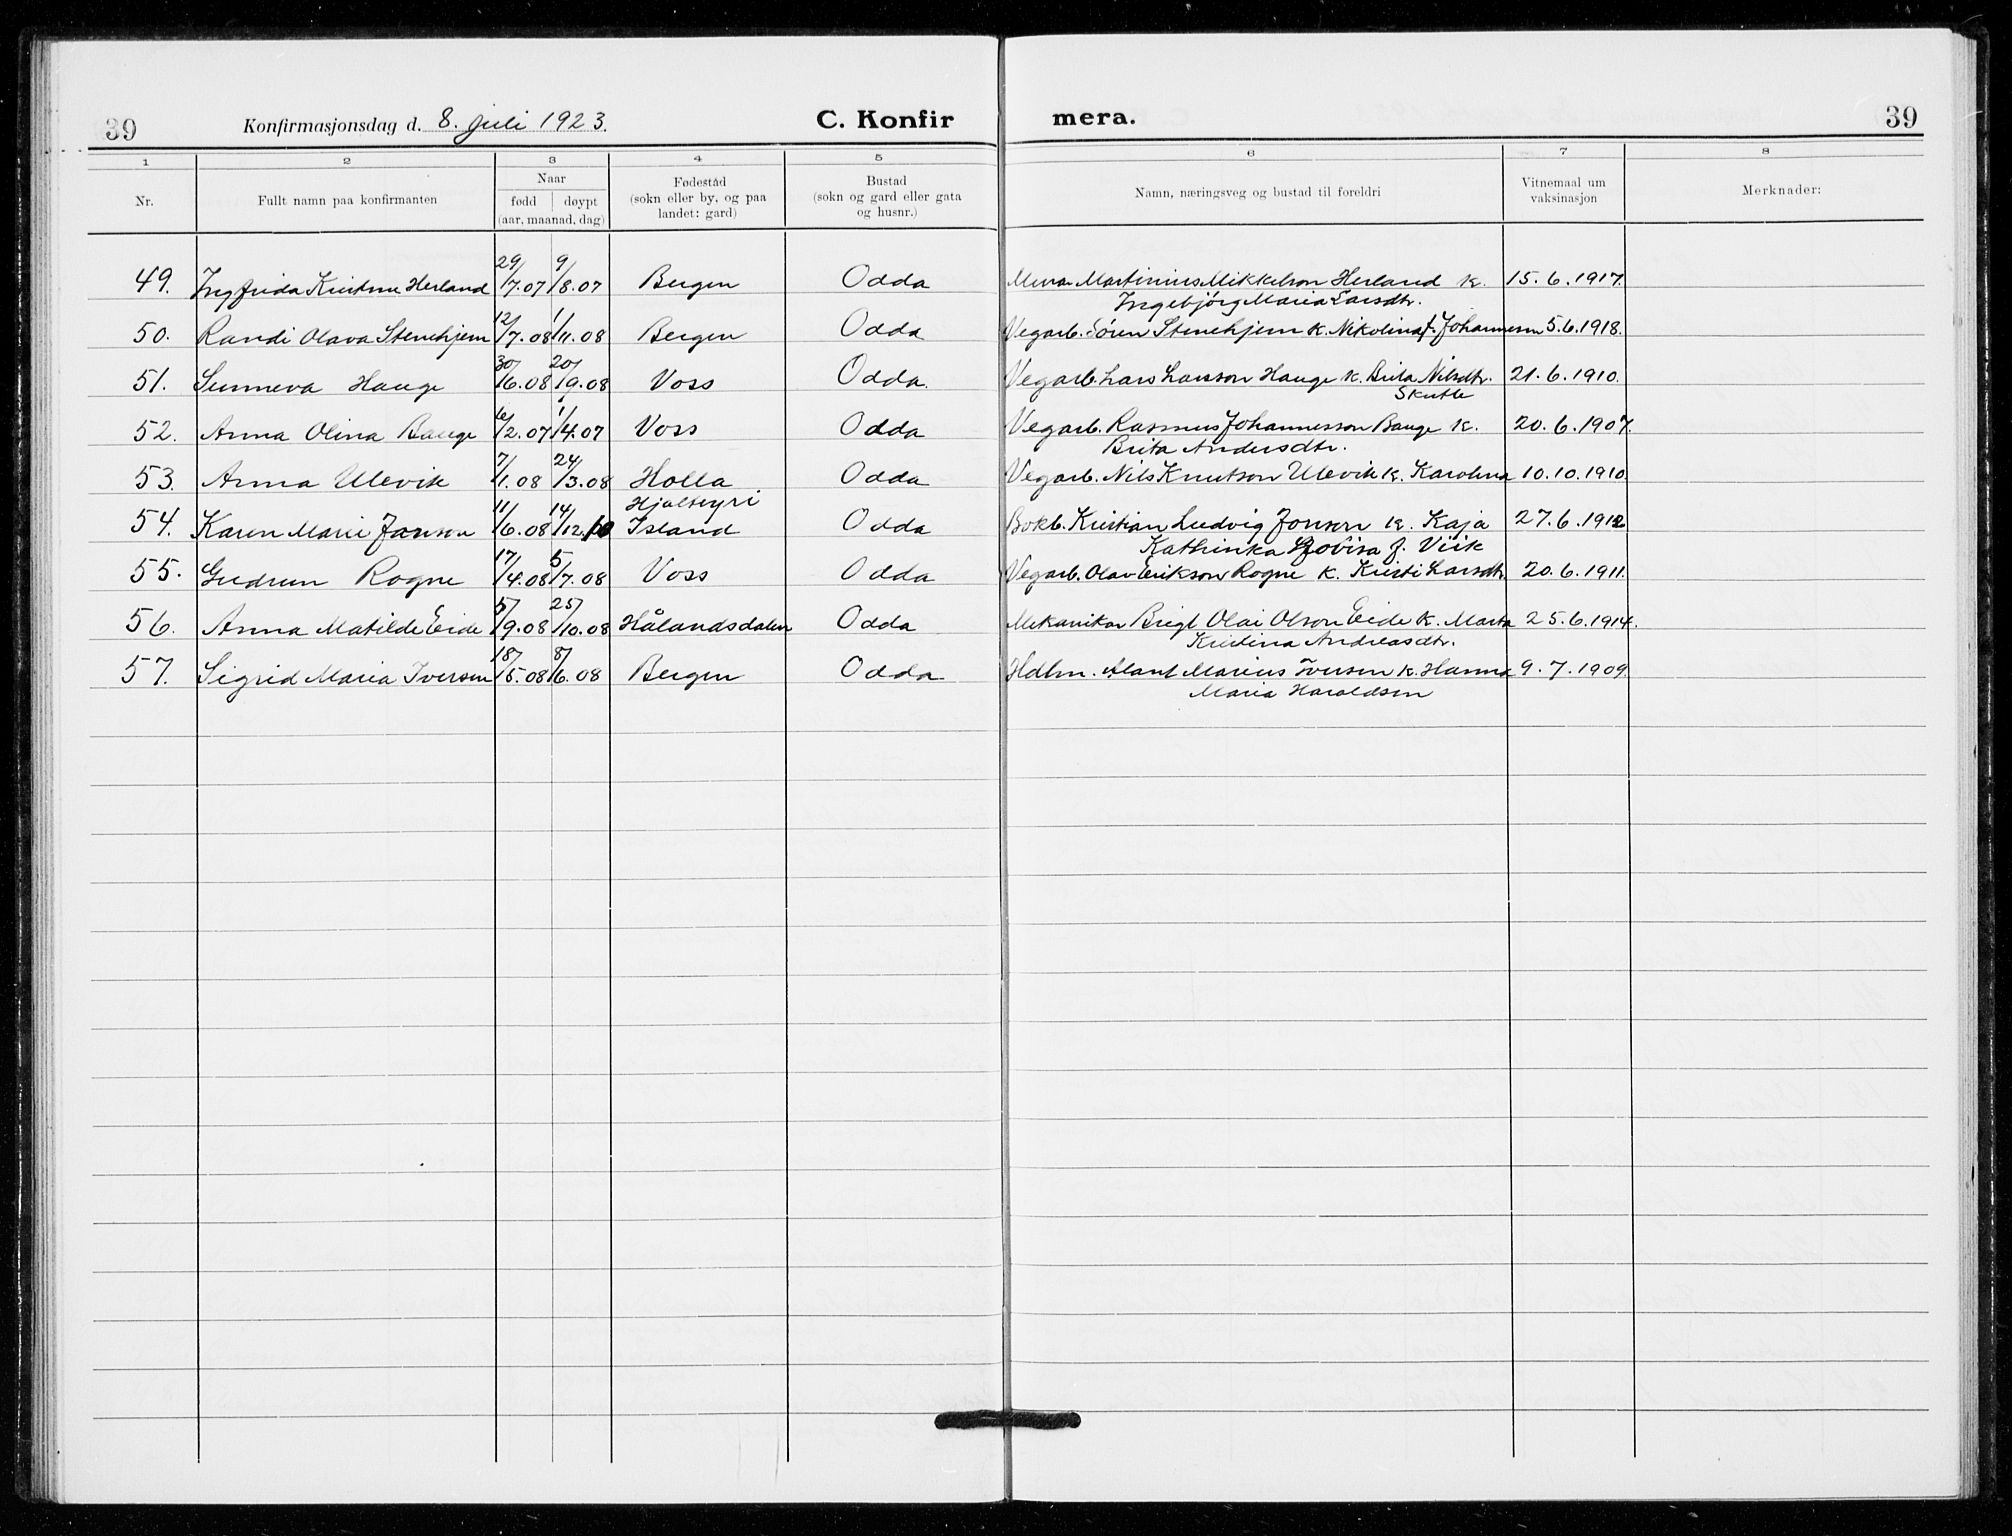 39 Konfirmasjonsdag d. 8. juli 1923. C. Konfir mera. 39
1 2 3 4 5 6 7 8
Nr. Fullt namn paa konfirmanten Naar født døypt (aar, maanad, dag) Fødestad (sokn eller by, og paa landet: gard) Bustad (sokn og gard eller gata og husnr.) Namn, næringsveg og bustad til foreldri Vitnemaal um vaksinasjon Merknader:
49. Ingfrida Kristine Herland 29/7.07 9/8.07 Bergen Odda Martinius Mikkelson Herland k. 15.6.1917.
Ingebjörg Maria Larsdtr.
50. Randi Olava Stenehjem 12/7.08 1/11.08 Bergen Odda Vegarb. Sören Stenehjem k. Nikolina f. Johannesen 5.6.1918.
51. Sunneva Hauge 30/6.08 20/9.08 Voss Odda. Vegarb. Lars Larsson Hauge k. Brita Nilsdtr. 21.6.1910.
Skutle
52. Anna Olina Bauge 6/2.07 1/4.07 Voss Odda Vegarb. Rasmus Johannesson Bauge k. 20.6.1907.
Brita Andersdtr.
53. Anna Ulevik 7/1.08 24/3.08 Holla Odda Vegarb. Nils Knutson Ulevik k. Karolina 10.10.1910.
Hjalteyri
54. Karen Marie Jonson 11/6.08 14/12.10 Island Odda Bokb. Kristian Ludvig Jonson k. Kaja 27.6.1912
Kathinka f. Viik
55. Gudrun Rogne 17/4.08 5/7.08 Voss Odda Vegarb. Olav Erikson Rogne k. Kristi Larsdtr. 20.6.1911.
56. Anna Matilde Eide 5/9.08 25/10.08 Hålandsdalen Odda Mekanikar Brigt Olai Olson Eide k. Marta 25.6.1914.
Kristina Andreasdtr.
57. Sigrid Maria Iversen 18/5.08 8/6.08 Bergen Odda Hdlm. Marius Iversen k. Hanna 9.7.1909.
Maria Haraldsen